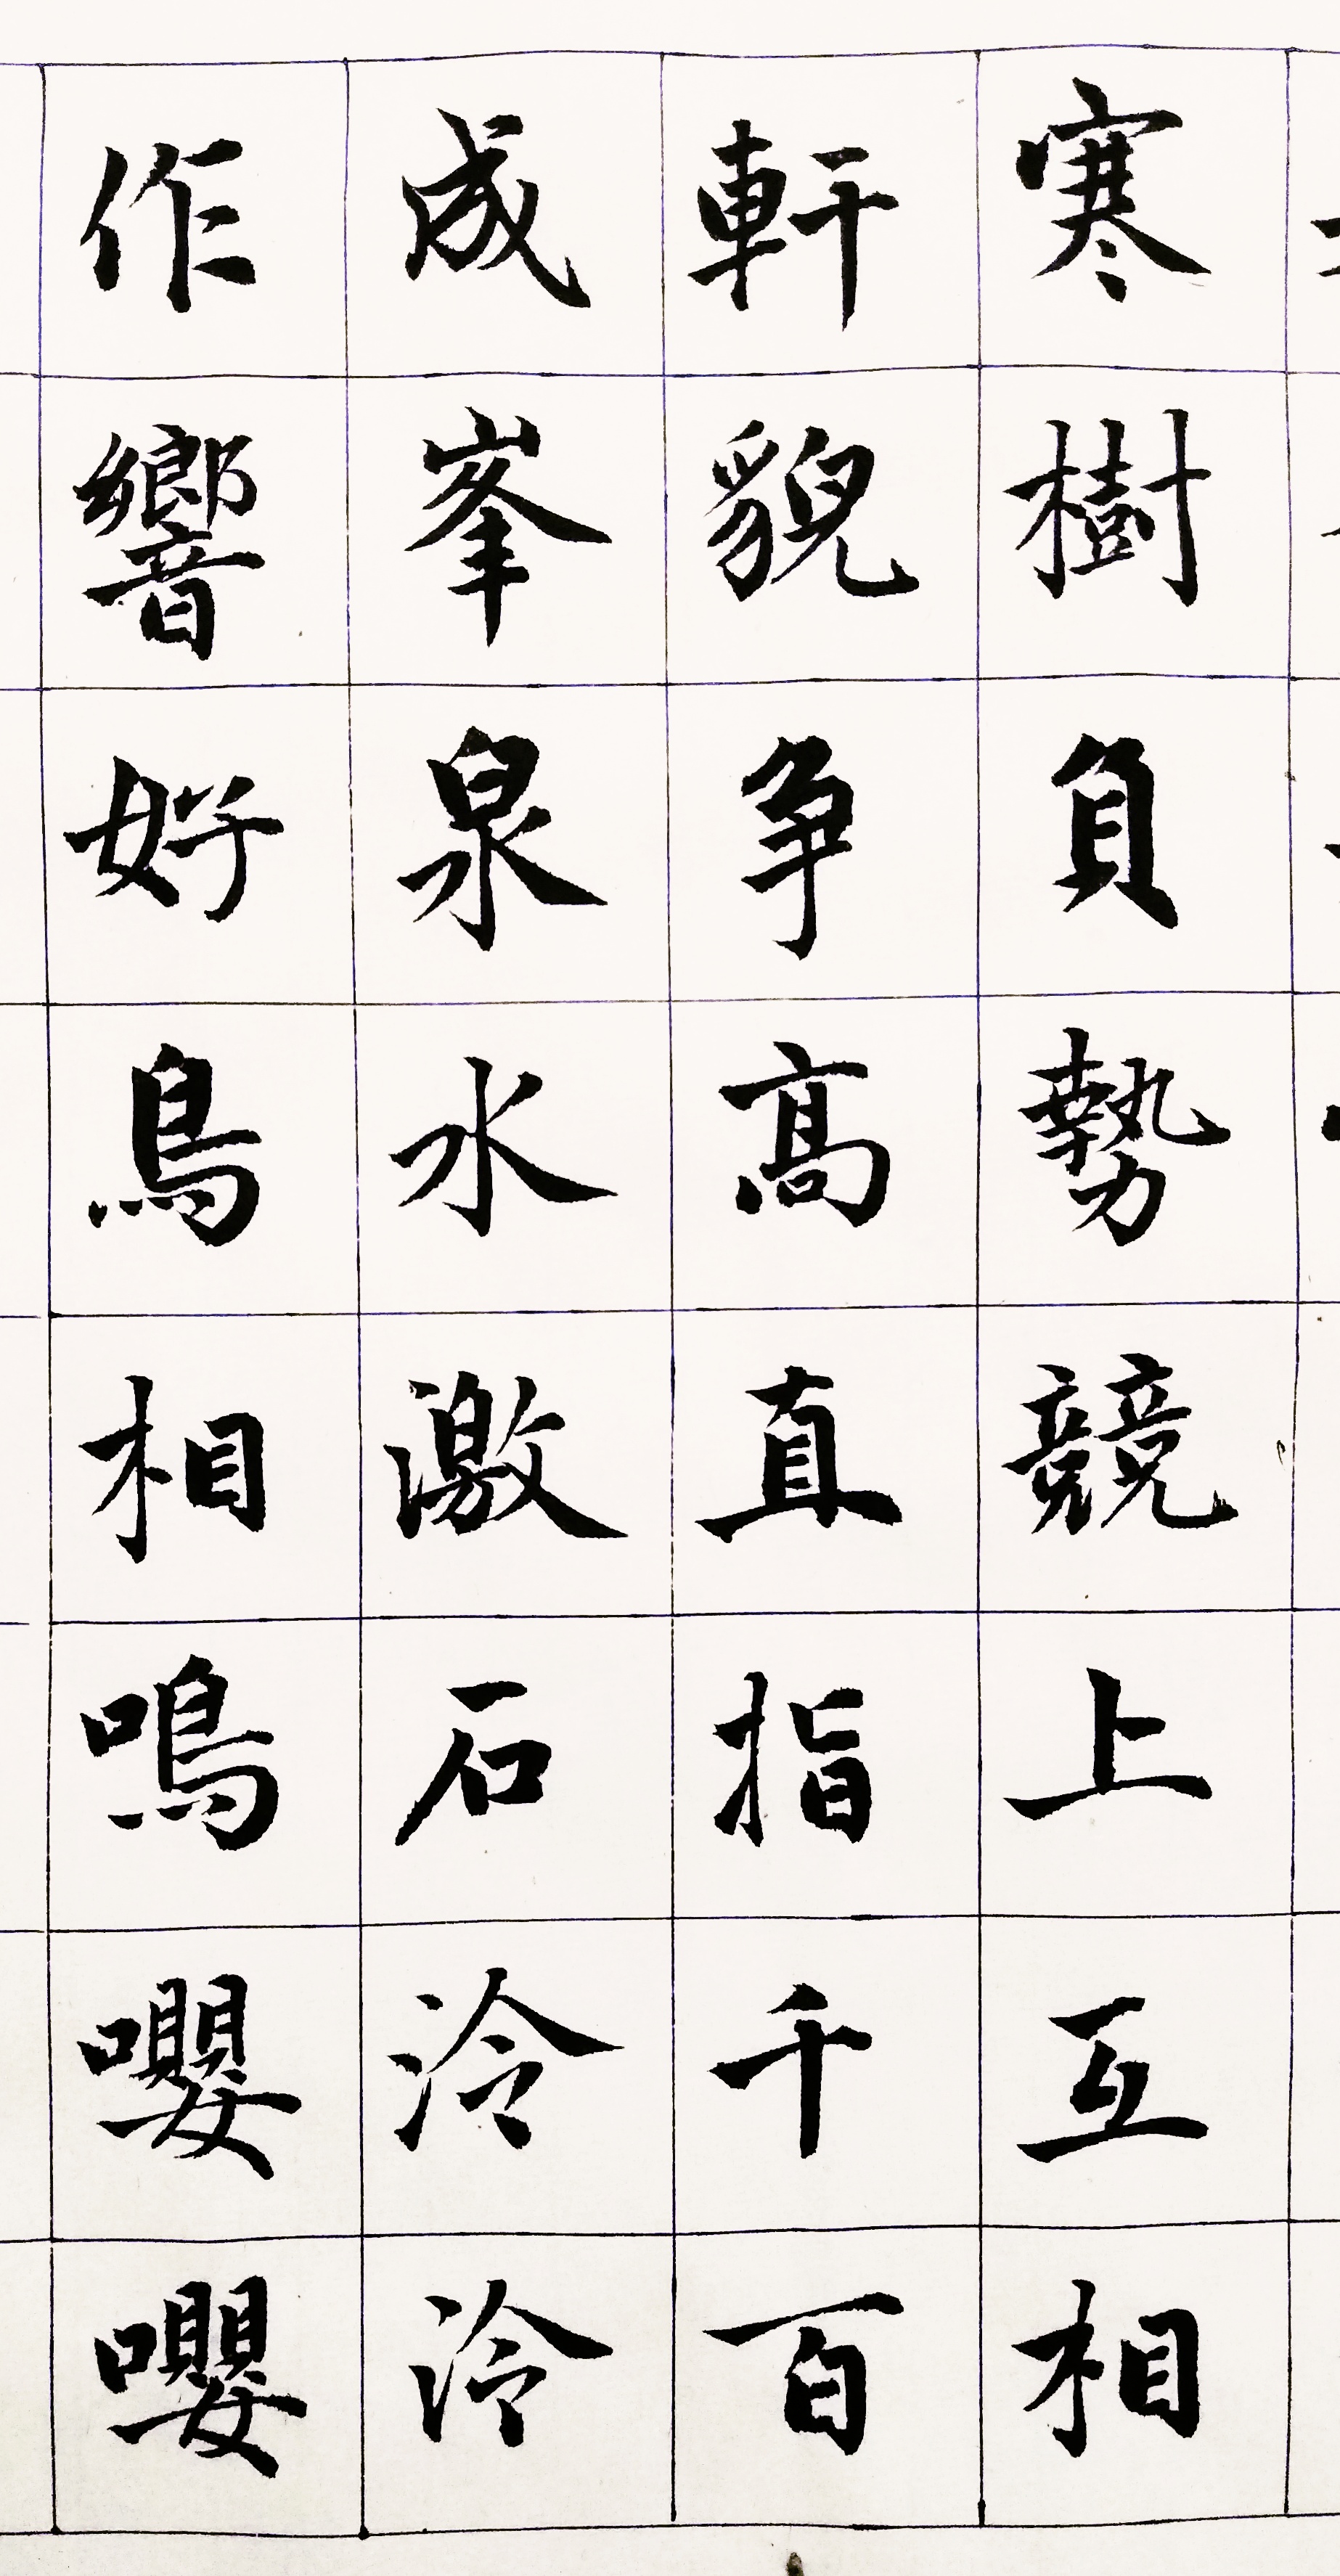 寒樹負勢競上互相
軒貌争高直指千百
成峯泉水激石泠泠
作響好鳥相鳴嚶嚶